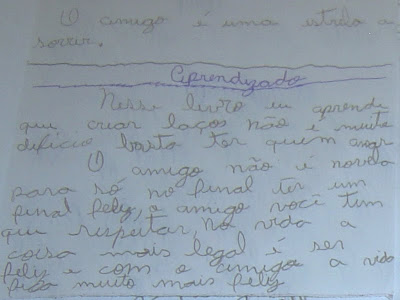 O amigo é uma estrela a
sorrir.
Aprendizado
Nesse livro eu aprende
que criar laços não é muito
dificio basta ter quem amar
O amigo não é novela
para só no final ter um
final feliz, o amigo você tem
que respeitar, na vida a
coisa mais legal é ser
feliz e com o amigo a vida
fica muito mais feliz